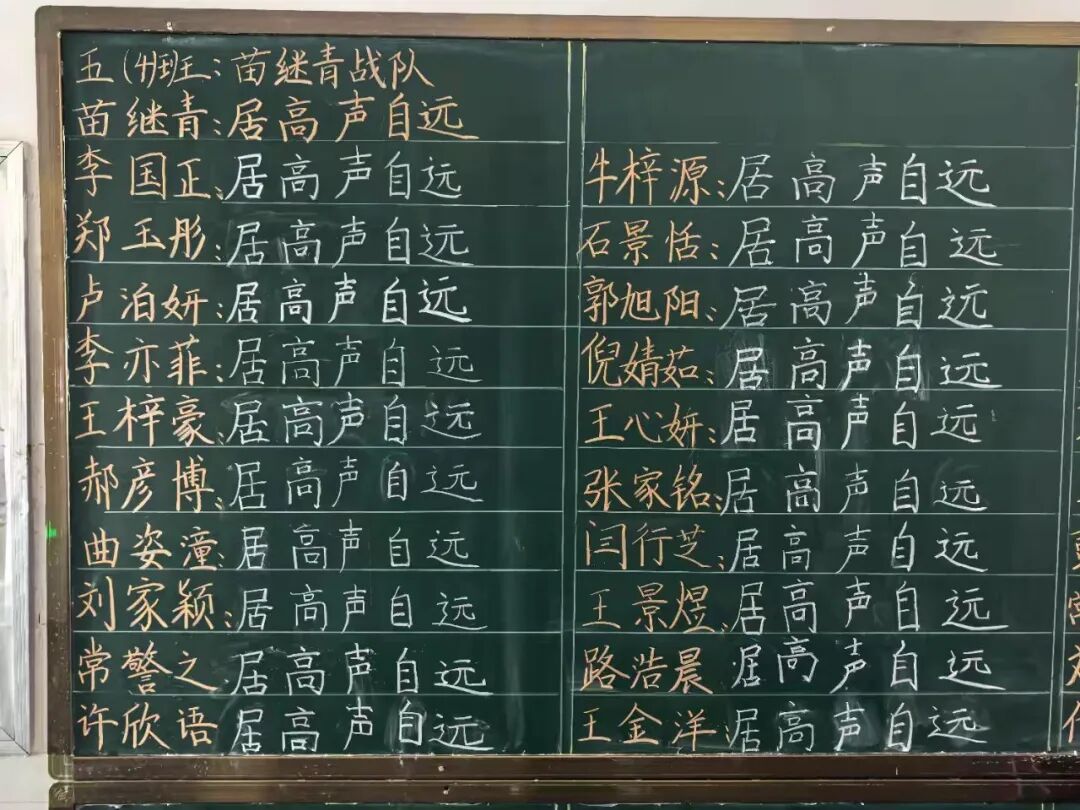 五(4)班：苗继青战队
苗继青：居高声自远
李国正：居高声自远
郑玉彤：居高声自远
卢泊妍：居高声自远
李亦菲：居高声自远
王梓豪：居高声自远
郝彦博：居高声自远
曲姿潼：居高声自远
刘家颖：居高声自远
常警之：居高声自远
许欣语：居高声自远
牛梓源：居高声自远
石景恬：居高声自远
郭旭阳：居高声自远
倪婧茹：居高声自远
王心妍：居高声自远
张家铭：居高声自远
闫行芝：居高声自远
王景煜：居高声自远
路浩晨：居高声自远
王金洋：居高声自远